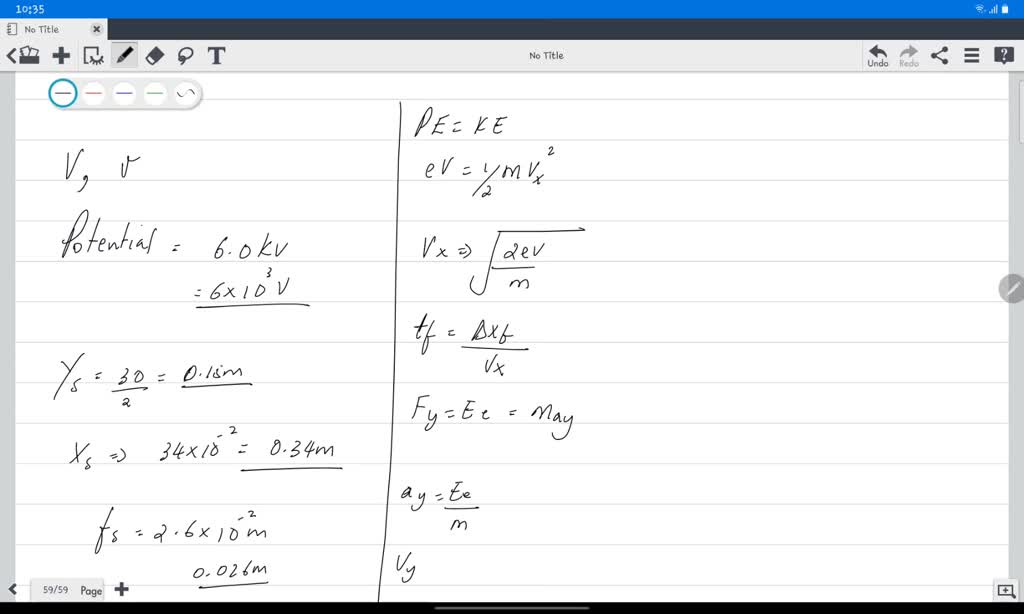 10:35
No Title
No Title
Undo
Redo
V, v
Potential = 6.0kV
= 6x10³V
Ys = 30/2 = 0.15m
Xs => 34x10⁻² = 0.34m
fs = 2.6x10⁻²m
0.026m
PE = KE
eV = 1/2 m Vx²
Vx => √(2eV/m)
tf = Δxf/Vx
Fy = Ee = may
ay = Ee/m
Vy
59/59 Page